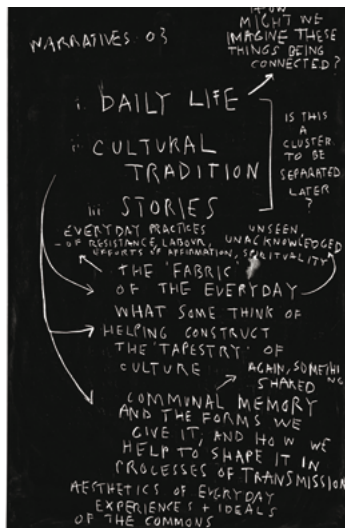 HOW
MIGHT WE
IMAGINE THESE
THINGS BEING
CONNECTED?
NARRATIVES 03
i. DAILY LIFE
ii CULTURAL
TRADITION
iii STORIES
IS THIS
A
CLUSTER
TO BE
SEPARATED
LATER
?
EVERYDAY PRACTICES
- OF RESISTANCE, LABOUR,
EFFORTS OF AFFIRMATION, SPIRITUALITY
UNSEEN,
UNACKNOWLEDGED
THE 'FABRIC'
OF THE EVERYDAY
WHAT SOME THINK OF
HELPING CONSTRUCT
THE 'TAPESTRY' OF
CULTURE
AGAIN, SOMETHING
SHARED
COMMUNAL MEMORY
AND THE FORMS WE
GIVE IT, AND HOW WE
HELP TO SHAPE IT IN
PROCESSES OF TRANSMISSION
AESTHETICS OF EVERYDAY
EXPERIENCES + IDEALS
OF THE COMMONS